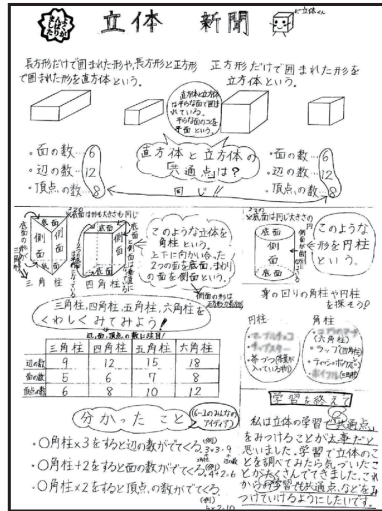 立体 新聞
立体くん
長方形だけで囲まれた形や、長方形と正方形
で囲まれた形を直方体という。
正方形だけで囲まれた形を
立方体という。
直方体と立方体
は平らな面で囲ま
れている。
平らな面のことを
平面という。
・面の数…6
・辺の数…12
・頂点の数…8
直方体と立方体の
共通点は?
同じ!!
・面の数…6
・辺の数…12
・頂点の数…8
底面
側面
三角柱
底面
側面
四角柱
このような立体を
角柱という。
上下に向かい合った
2つの面を底面、まわり
の面を側面という。
底面は同じ大きさの円
底面
側面
このような
形を円柱
という。
三角柱、四角柱、五角柱、六角柱を
くわしくみてみよう!
辺、面、頂点の数に注目!
三角柱 四角柱 五角柱 六角柱
辺の数 9 12 15 18
面の数 5 6 7 8
頂点の数 6 8 10 12
身の回りの角柱や円柱
を探そう!
円柱
角柱
(六角柱)
・ラップ(四角柱)
分かったこと
(6-1のみんなの
アイディア)
・〇角柱×3をすると辺の数がでてくる。(例)
3×3=9
・〇角柱+2をすると面の数がでてくる。(例)
4+2=6
・〇角柱×2をすると頂点の数がでてくる。(例)
5×2=10
学習を終えて
私は立体の学習で共通点
をみつけることが大事だと
思いました。学習で立体のこ
とを調べてみたら気づいたこ
とがたくさんでてきました。これ
から学習でも共通点などをみ
つけていけるようにしたいです。